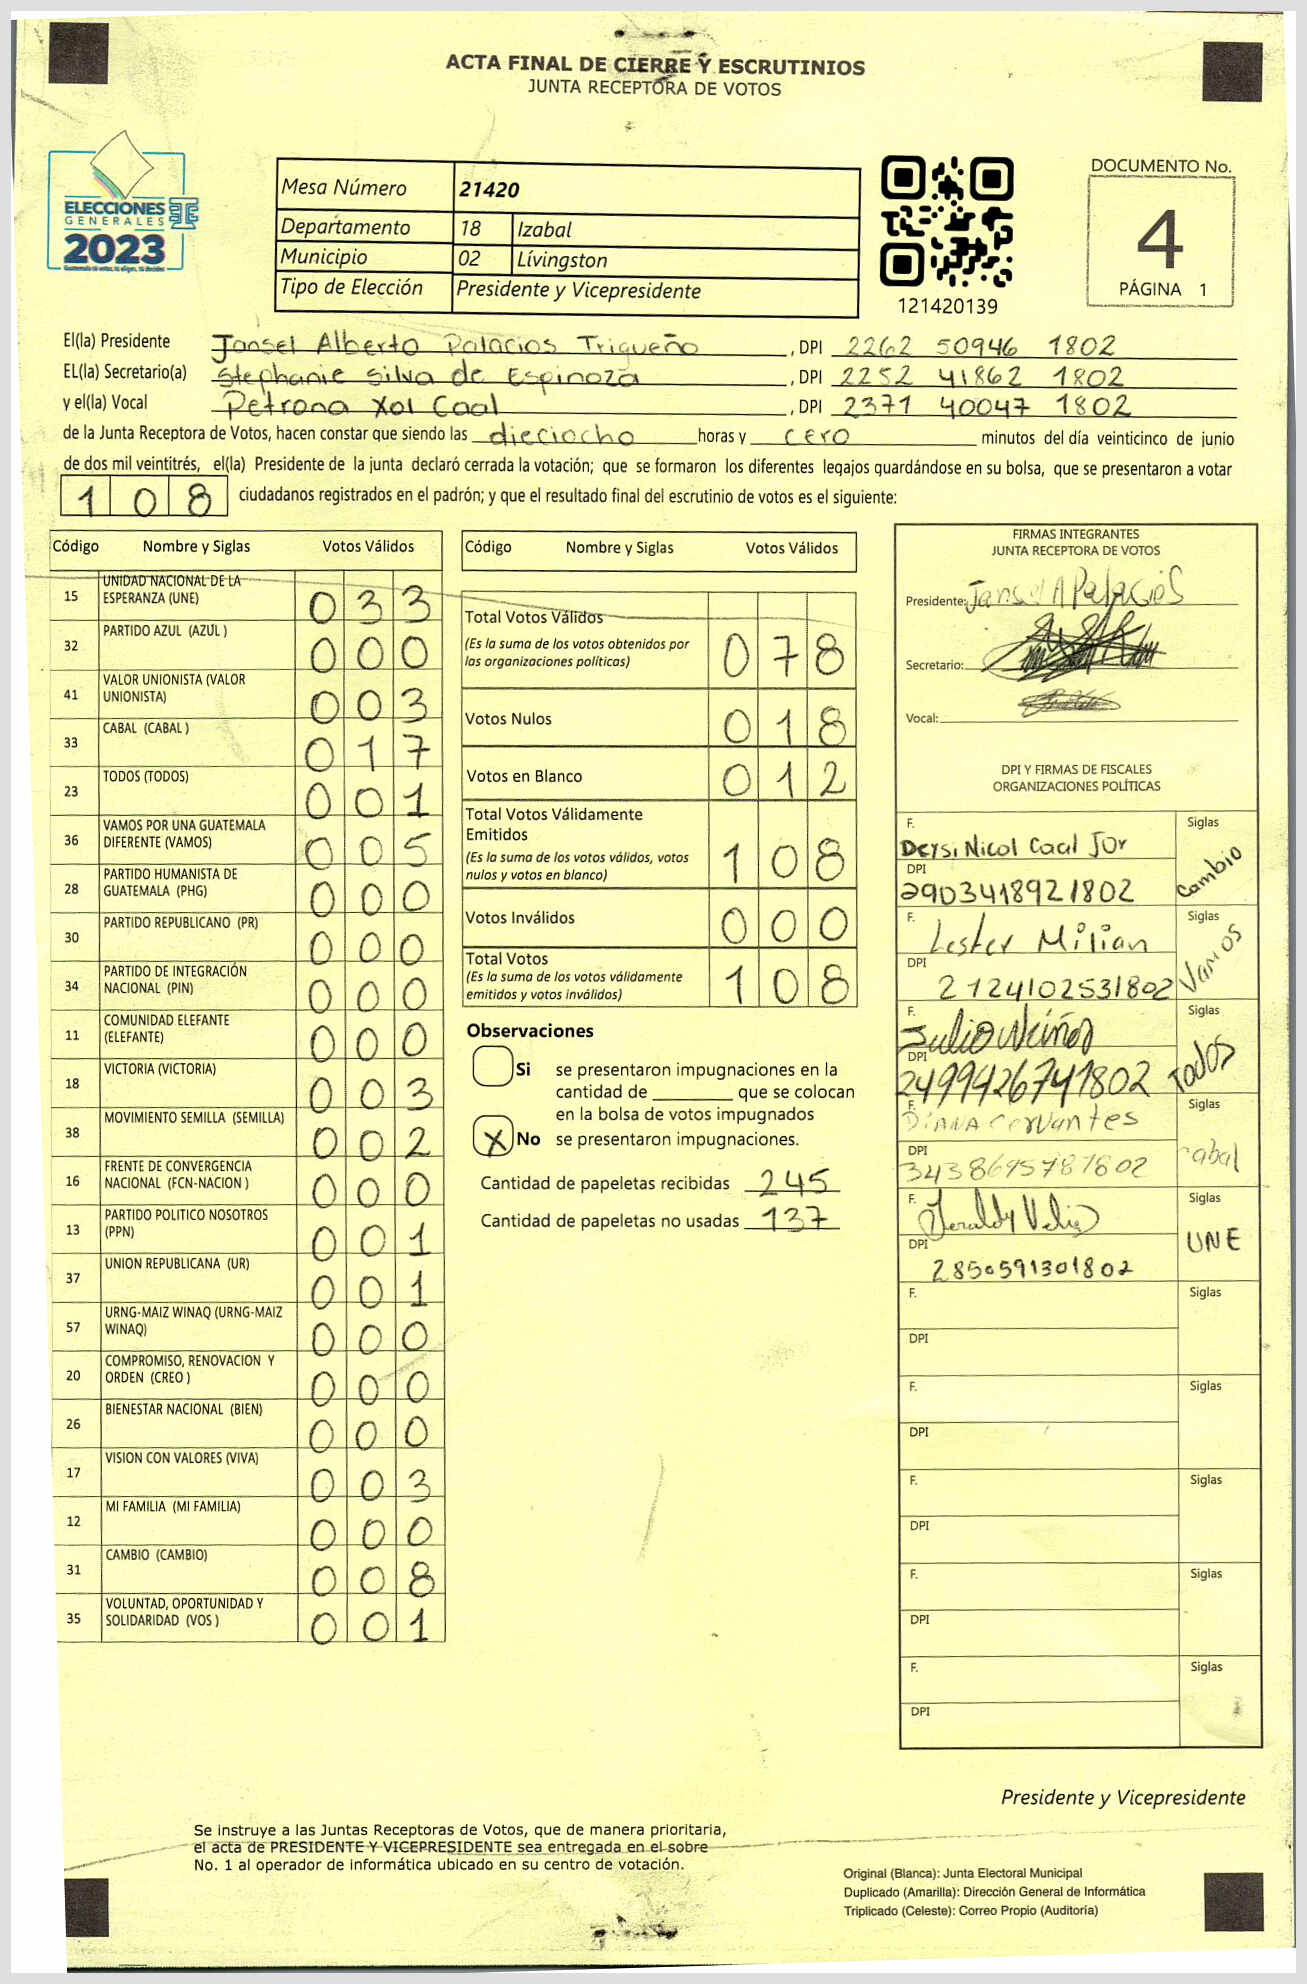 ACTA FINAL DE CIERRE Y ESCRUTINIOS
JUNTA RECEPTORA DE VOTOS
ELECCIONES
GENERALES
2023
Mesa Número 21420
Departamento 18 Izabal
Municipio 02 Lívingston
Tipo de Elección Presidente y Vicepresidente
121420139
DOCUMENTO No.
4
PÁGINA 1
El(la) Presidente Jansel Alberto Palacios Trigueño, DPI 2262 50946 1802
EL(la) Secretario(a) Stephanie Silva de Espinoza, DPI 2252 41862 1802
y el(la) Vocal Petrona Xol Caal, DPI 2371 40047 1802
de la Junta Receptora de Votos, hacen constar que siendo las dieciocho horas y cero minutos del día veinticinco de junio
de dos mil veintitrés, el(la) Presidente de la junta declaró cerrada la votación; que se formaron los diferentes legajos guardándose en su bolsa, que se presentaron a votar
108 ciudadanos registrados en el padrón; y que el resultado final del escrutinio de votos es el siguiente:
Código Nombre y Siglas Votos Válidos
15 UNIDAD NACIONAL DE LA ESPERANZA (UNE) 033
32 PARTIDO AZUL (AZUL ) 000
41 VALOR UNIONISTA (VALOR UNIONISTA) 003
33 CABAL (CABAL ) 017
23 TODOS (TODOS) 001
36 VAMOS POR UNA GUATEMALA DIFERENTE (VAMOS) 005
28 PARTIDO HUMANISTA DE GUATEMALA (PHG) 000
30 PARTIDO REPUBLICANO (PR) 000
34 PARTIDO DE INTEGRACIÓN NACIONAL (PIN) 000
11 COMUNIDAD ELEFANTE (ELEFANTE) 000
18 VICTORIA (VICTORIA) 003
38 MOVIMIENTO SEMILLA (SEMILLA) 002
16 FRENTE DE CONVERGENCIA NACIONAL (FCN-NACION ) 000
13 PARTIDO POLITICO NOSOTROS (PPN) 001
37 UNION REPUBLICANA (UR) 001
57 URNG-MAIZ WINAQ (URNG-MAIZ WINAQ) 000
20 COMPROMISO, RENOVACION Y ORDEN (CREO ) 000
26 BIENESTAR NACIONAL (BIEN) 000
17 VISION CON VALORES (VIVA) 003
12 MI FAMILIA (MI FAMILIA) 000
31 CAMBIO (CAMBIO) 008
35 VOLUNTAD, OPORTUNIDAD Y SOLIDARIDAD (VOS ) 001
Código Nombre y Siglas Votos Válidos
Total Votos Válidos 078
(Es la suma de los votos obtenidos por
las organizaciones políticas)
Votos Nulos 018
Votos en Blanco 012
Total Votos Válidamente
Emitidos 108
(Es la suma de los votos válidos, votos
nulos y votos en blanco)
Votos Inválidos 000
Total Votos 108
(Es la suma de los votos válidamente
emitidos y votos inválidos)
Observaciones
Si se presentaron impugnaciones en la
cantidad de ________ que se colocan
en la bolsa de votos impugnados
X No se presentaron impugnaciones.
Cantidad de papeletas recibidas 245
Cantidad de papeletas no usadas 137
FIRMAS INTEGRANTES
JUNTA RECEPTORA DE VOTOS
Presidente: Jansel A Palacios
Secretario:
Vocal:
DPI Y FIRMAS DE FISCALES
ORGANIZACIONES POLÍTICAS
F. Siglas
Deysi Nicol Caal Jor Cambio
DPI
2903418921802
F. Siglas
Lester Milian Vamos
DPI
2124102531802
F. Siglas
Julio TODOS
DPI
2499426741802
F. Siglas
DIANA Cervantes cabal
DPI
3438695787802
F. Siglas
UNE
DPI
2850591301802
F. Siglas
DPI
F. Siglas
DPI
F. Siglas
DPI
F. Siglas
DPI
F. Siglas
DPI
Presidente y Vicepresidente
Se instruye a las Juntas Receptoras de Votos, que de manera prioritaria,
el acta de PRESIDENTE Y VICEPRESIDENTE sea entregada en el sobre
No. 1 al operador de informática ubicado en su centro de votación.
Original (Blanca): Junta Electoral Municipal
Duplicado (Amarilla): Dirección General de Informática
Triplicado (Celeste): Correo Propio (Auditoría)